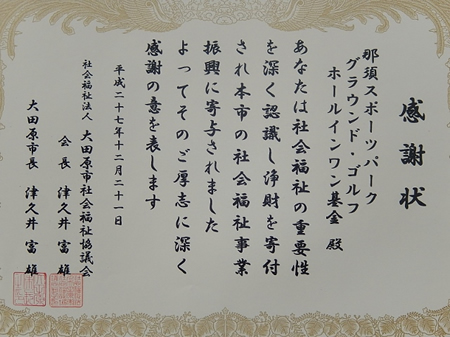 感謝状
那須スポーツパーク
グラウンド・ゴルフ
ホールインワン基金 殿
あなたは社会福祉の重要性
を深く認識し浄財を寄付
され本市の社会福祉事業
振興に寄与されました
よってそのご厚志に深く
感謝の意を表します
平成二十七年十二月二十一日
社会福祉法人 大田原市社会福祉協議会
会長 津久井富雄
大田原市長 津久井富雄